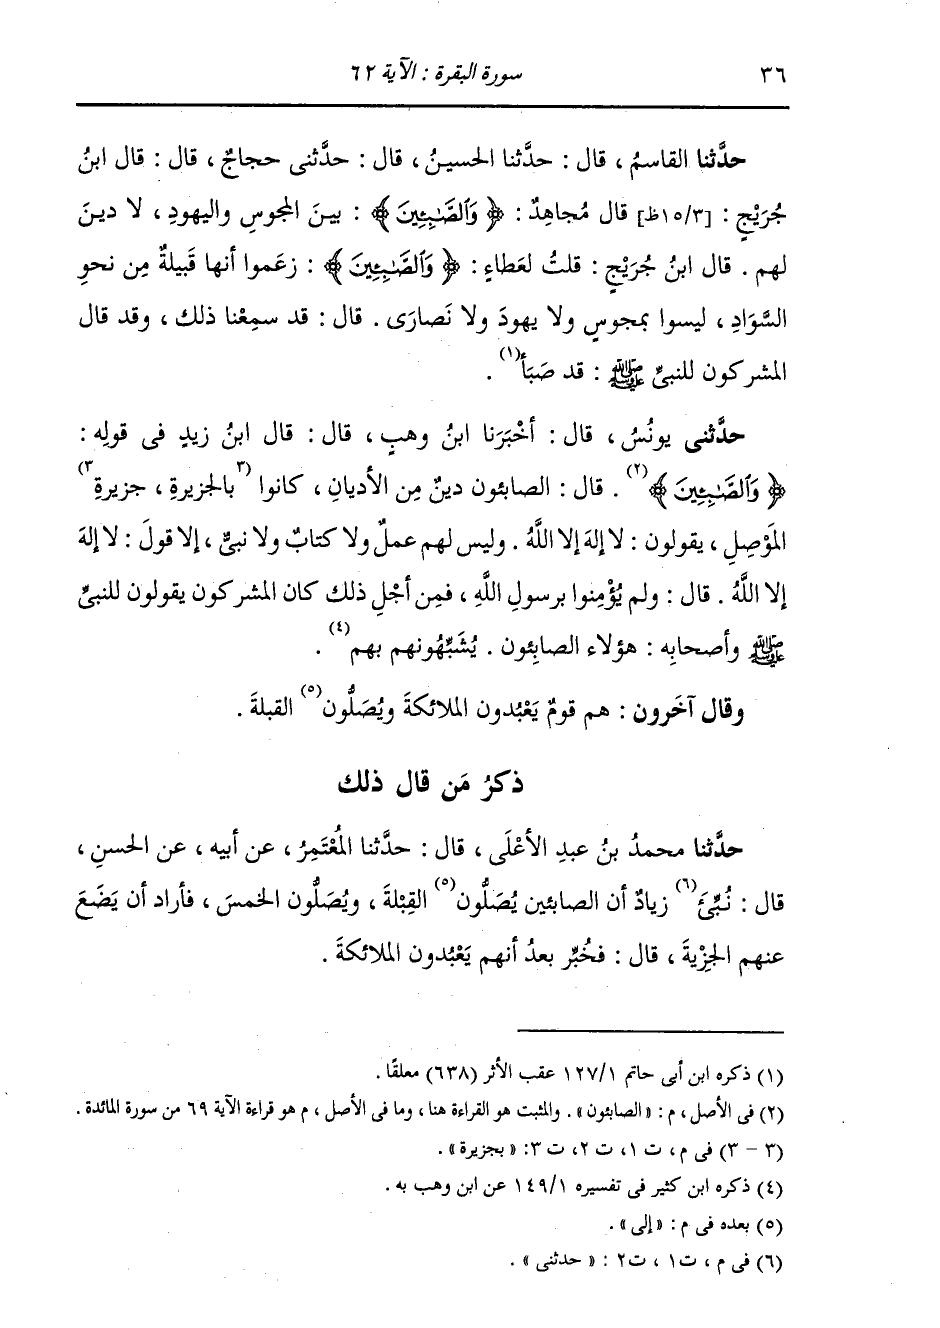 ٣٦ سورة البقرة : الآية ٦٢
حدَّثنا القاسمُ ، قال : حدَّثنا الحسينُ ، قال : حدَّثنى حجاجٌ ، قال : قال ابنُ
جُرَيْجٍ : [٣/ ١٥ظ] قال مُجاهِدٌ : ﴿ وَٱلصَّٰبِـِٔينَ ﴾ : بينَ المجوسِ واليهودِ ، لا دينَ
لهم . قال ابنُ جُرَيْجٍ : قلتُ لعَطاءٍ : ﴿ وَٱلصَّٰبِـِٔينَ ﴾ : زعَموا أنها قَبيلةٌ مِن نحوِ
السَّوَادِ ، ليسوا بمجوسٍ ولا يهودَ ولا نَصارَى . قال : قد سمِعْنا ذلك ، وقد قال
المشركون للنبىِّ ﷺ : قد صَبَأ(١) .
حدَّثنى يونُسُ ، قال : أخْبَرَنا ابنُ وهبٍ ، قال : قال ابنُ زيدٍ فى قولِه :
﴿ وَٱلصَّٰبِـِٔينَ ﴾(٢) . قال : الصابئون دينٌ مِن الأديانِ ، كانوا (٣بالجزيرةِ ، جزيرةِ٣)
المَوْصِلِ ، يقولون : لا إلهَ إلا اللَّهُ . وليس لهم عملٌ ولا كتابٌ ولا نبىٌّ ، إلا قولَ : لا إلهَ
إلا اللَّهُ . قال : ولم يُؤْمِنوا برسولِ اللَّهِ ، فمِن أجْلِ ذلك كان المشركون يقولون للنبىِّ
ﷺ وأصحابِه : هؤلاء الصابِئون . يُشَبِّهُونهم بهم(٤) .
وقال آخَرون : هم قومٌ يَعْبُدون الملائكةَ ويُصَلُّون(٥) القبلةَ .
ذكرُ مَن قال ذلك
حدَّثنا محمدُ بنُ عبدِ الأعْلَى ، قال : حدَّثنا المُعْتَمِرُ ، عن أبيه ، عن الحسنِ ،
قال : نُبِّئَ(٦) زيادٌ أن الصابئين يُصَلُّون(٥) القِبْلةَ ، ويُصَلُّون الخمسَ ، فأراد أن يَضَعَ
عنهم الجِزْيةَ ، قال : فخُبِّر بعدُ أنهم يَعْبُدون الملائكةَ .
(١) ذكره ابن أبى حاتم ١/ ١٢٧ عقب الأثر (٦٣٨) معلقًا .
(٢) فى الأصل ، م : «الصابئون» . والمثبت هو القراءة هنا ، وما فى الأصل ، م هو قراءة الآية ٦٩ من سورة المائدة .
(٣ - ٣) فى م ، ت ١، ت ٢، ت ٣: «بجزيرة» .
(٤) ذكره ابن كثير فى تفسيره ١/ ١٤٩ عن ابن وهب به .
(٥) بعده فى م : «إلى» .
(٦) فى م ، ت١ ، ت٢ : «حدثنى» .